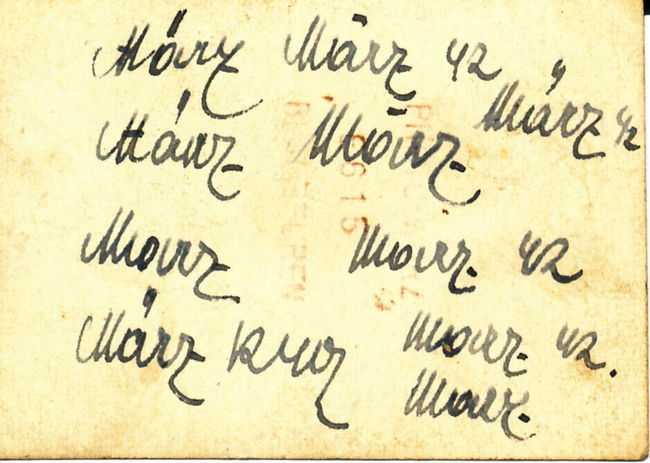 März März 42
März 42
März März
Marz Marz. 42
März
Marz. 42.
Marz.